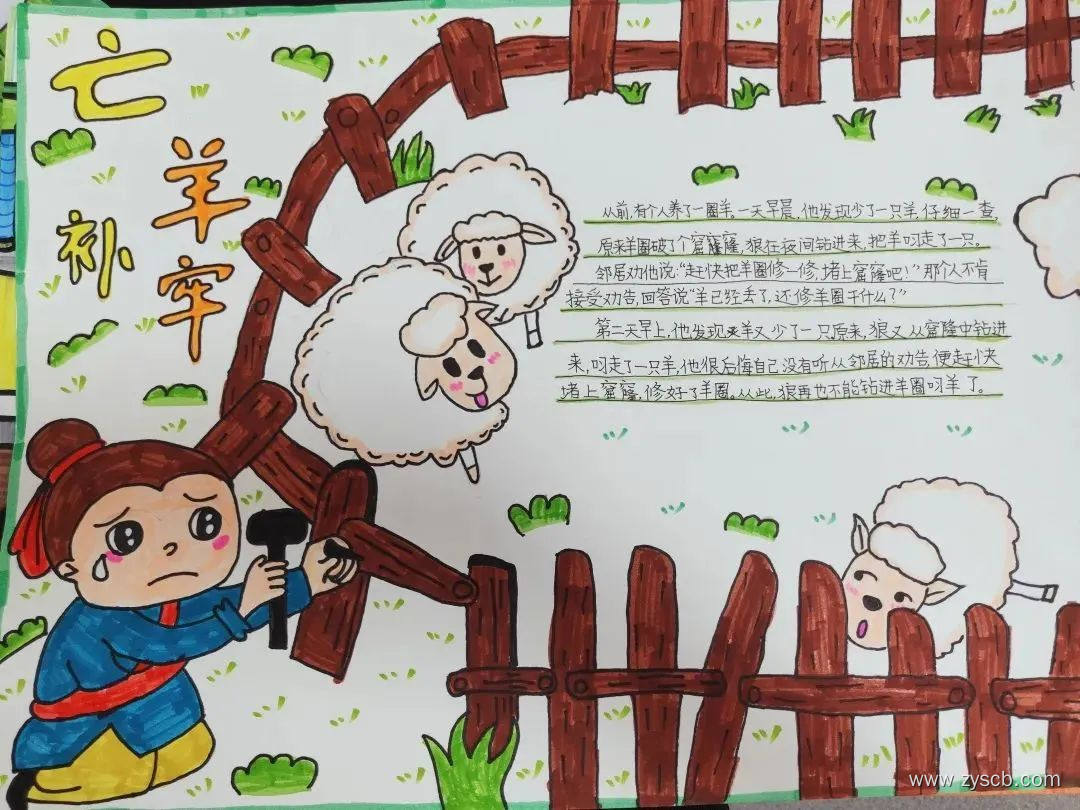 亡羊
补牢
从前,有个人养了一圈羊。一天早晨,他发现少了一只羊,仔细一查,
原来羊圈破了个窟窿窿,狼在夜间钻进来,把羊叼走了一只。
邻居劝他说:“赶快把羊圈修一修,堵上窟窿吧!”那个人不肯
接受劝告,回答说“羊已经丢了,还修羊圈干什么?”
第二天早上,他发现羊又少了一只原来,狼又从窟窿中钻进
来,叼走了一只羊,他很后悔自己没有听从邻居的劝告,便赶快
堵上窟窿,修好了羊圈。从此,狼再也不能钻进羊圈叼羊了。
www.zyscb.com